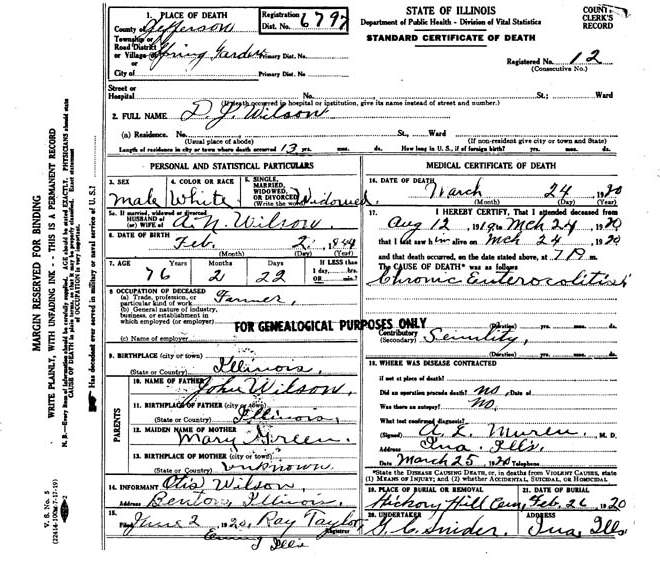 STATE OF ILLINOIS
Department of Public Health - Division of Vital Statistics
STANDARD CERTIFICATE OF DEATH
COUNTY CLERK'S RECORD
Registered No. 12
(Consecutive No.)
1. PLACE OF DEATH
Registration Dist. No. 6797
County of Jefferson
Township or Road District or Village Spring Garden Primary Dist. No.
or
City of Primary Dist. No.
Street or Hospital No. St.; Ward
(If death occurred in hospital or institution, give its name instead of street and number.)
2. FULL NAME D. J. Wilson
(a) Residence. No. St., Ward
(Usual place of abode) (If non-resident give city or town and State)
Length of residence in city or town where death occurred 13 yrs. mos. ds. How long in U. S., if of foreign birth? yrs. mos. ds.
PERSONAL AND STATISTICAL PARTICULARS
3. SEX Male
4. COLOR OR RACE White
5. SINGLE, MARRIED, WIDOWED OR DIVORCED (Write the word) Widowed
5a. If married, widowed or divorced
HUSBAND of (or) WIFE of A. N. Wilson
6. DATE OF BIRTH Feb. 2 1844
(Month) (Day) (Year)
7. AGE Years Months Days If LESS than 1 day, hrs. OR min.?
76 2 22
8 OCCUPATION OF DECEASED
(a) Trade, profession, or particular kind of work Farmer,
(b) General nature of industry, business, or establishment in which employed (or employer)
(c) Name of employer
FOR GENEALOGICAL PURPOSES ONLY
9. BIRTHPLACE (city or town)
(State or Country) Illinois.
PARENTS
10. NAME OF FATHER John Wilson.
11. BIRTHPLACE OF FATHER (city or town)
(State or Country) Illinois,
12. MAIDEN NAME OF MOTHER Mary Green.
13. BIRTHPLACE OF MOTHER (city or town)
(State or Country) Unknown.
14. INFORMANT Otis Wilson,
Address Benton, Illinois.
15. Filed June 2 1920 Ray Taylor
Registrar
Ills
MEDICAL CERTIFICATE OF DEATH
16. DATE OF DEATH March 24 1920
(Month) (Day) (Year)
17. I HEREBY CERTIFY, That I attended deceased from
Aug 12 1919 to Mch 24 1920
that I last saw him alive on Mch 24 1920
and that death occurred, on the date stated above, at 7 A m.
The CAUSE OF DEATH* was as follows
Chronic Enterocolitis
(Duration) yrs. mos. ds.
Contributory (Secondary) Senility,
(Duration) yrs. mos. ds.
18. WHERE WAS DISEASE CONTRACTED
if not at place of death?
Did an operation precede death? no Date of
Was there an autopsy? no.
What test confirmed diagnosis?
(Signed) A. L. Muren M. D.
Address Ina. Ills.
Date March 25 1920 Telephone
*State the DISEASE CAUSING DEATH, or, in deaths from VIOLENT CAUSES, state (1) MEANS OF INJURY; and (2) whether ACCIDENTAL, SUICIDAL, OR HOMICIDAL
19. PLACE OF BURIAL OR REMOVAL Hickory Hill Cem.
21. DATE OF BURIAL Feb. 26 1920
20. UNDERTAKER G. C. Snider.
ADDRESS Ina, Ills
MARGIN RESERVED FOR BINDING
WRITE PLAINLY, WITH UNFADING INK -- THIS IS A PERMANENT RECORD
N. B.—Every item of information should be carefully supplied. AGE should be stated EXACTLY. PHYSICIANS should state
CAUSE OF DEATH in plain terms, that it may be properly classified. Exact statement
of OCCUPATION is very important.
Has decedent ever served in military or naval service of U. S.?
V. S. No. 5